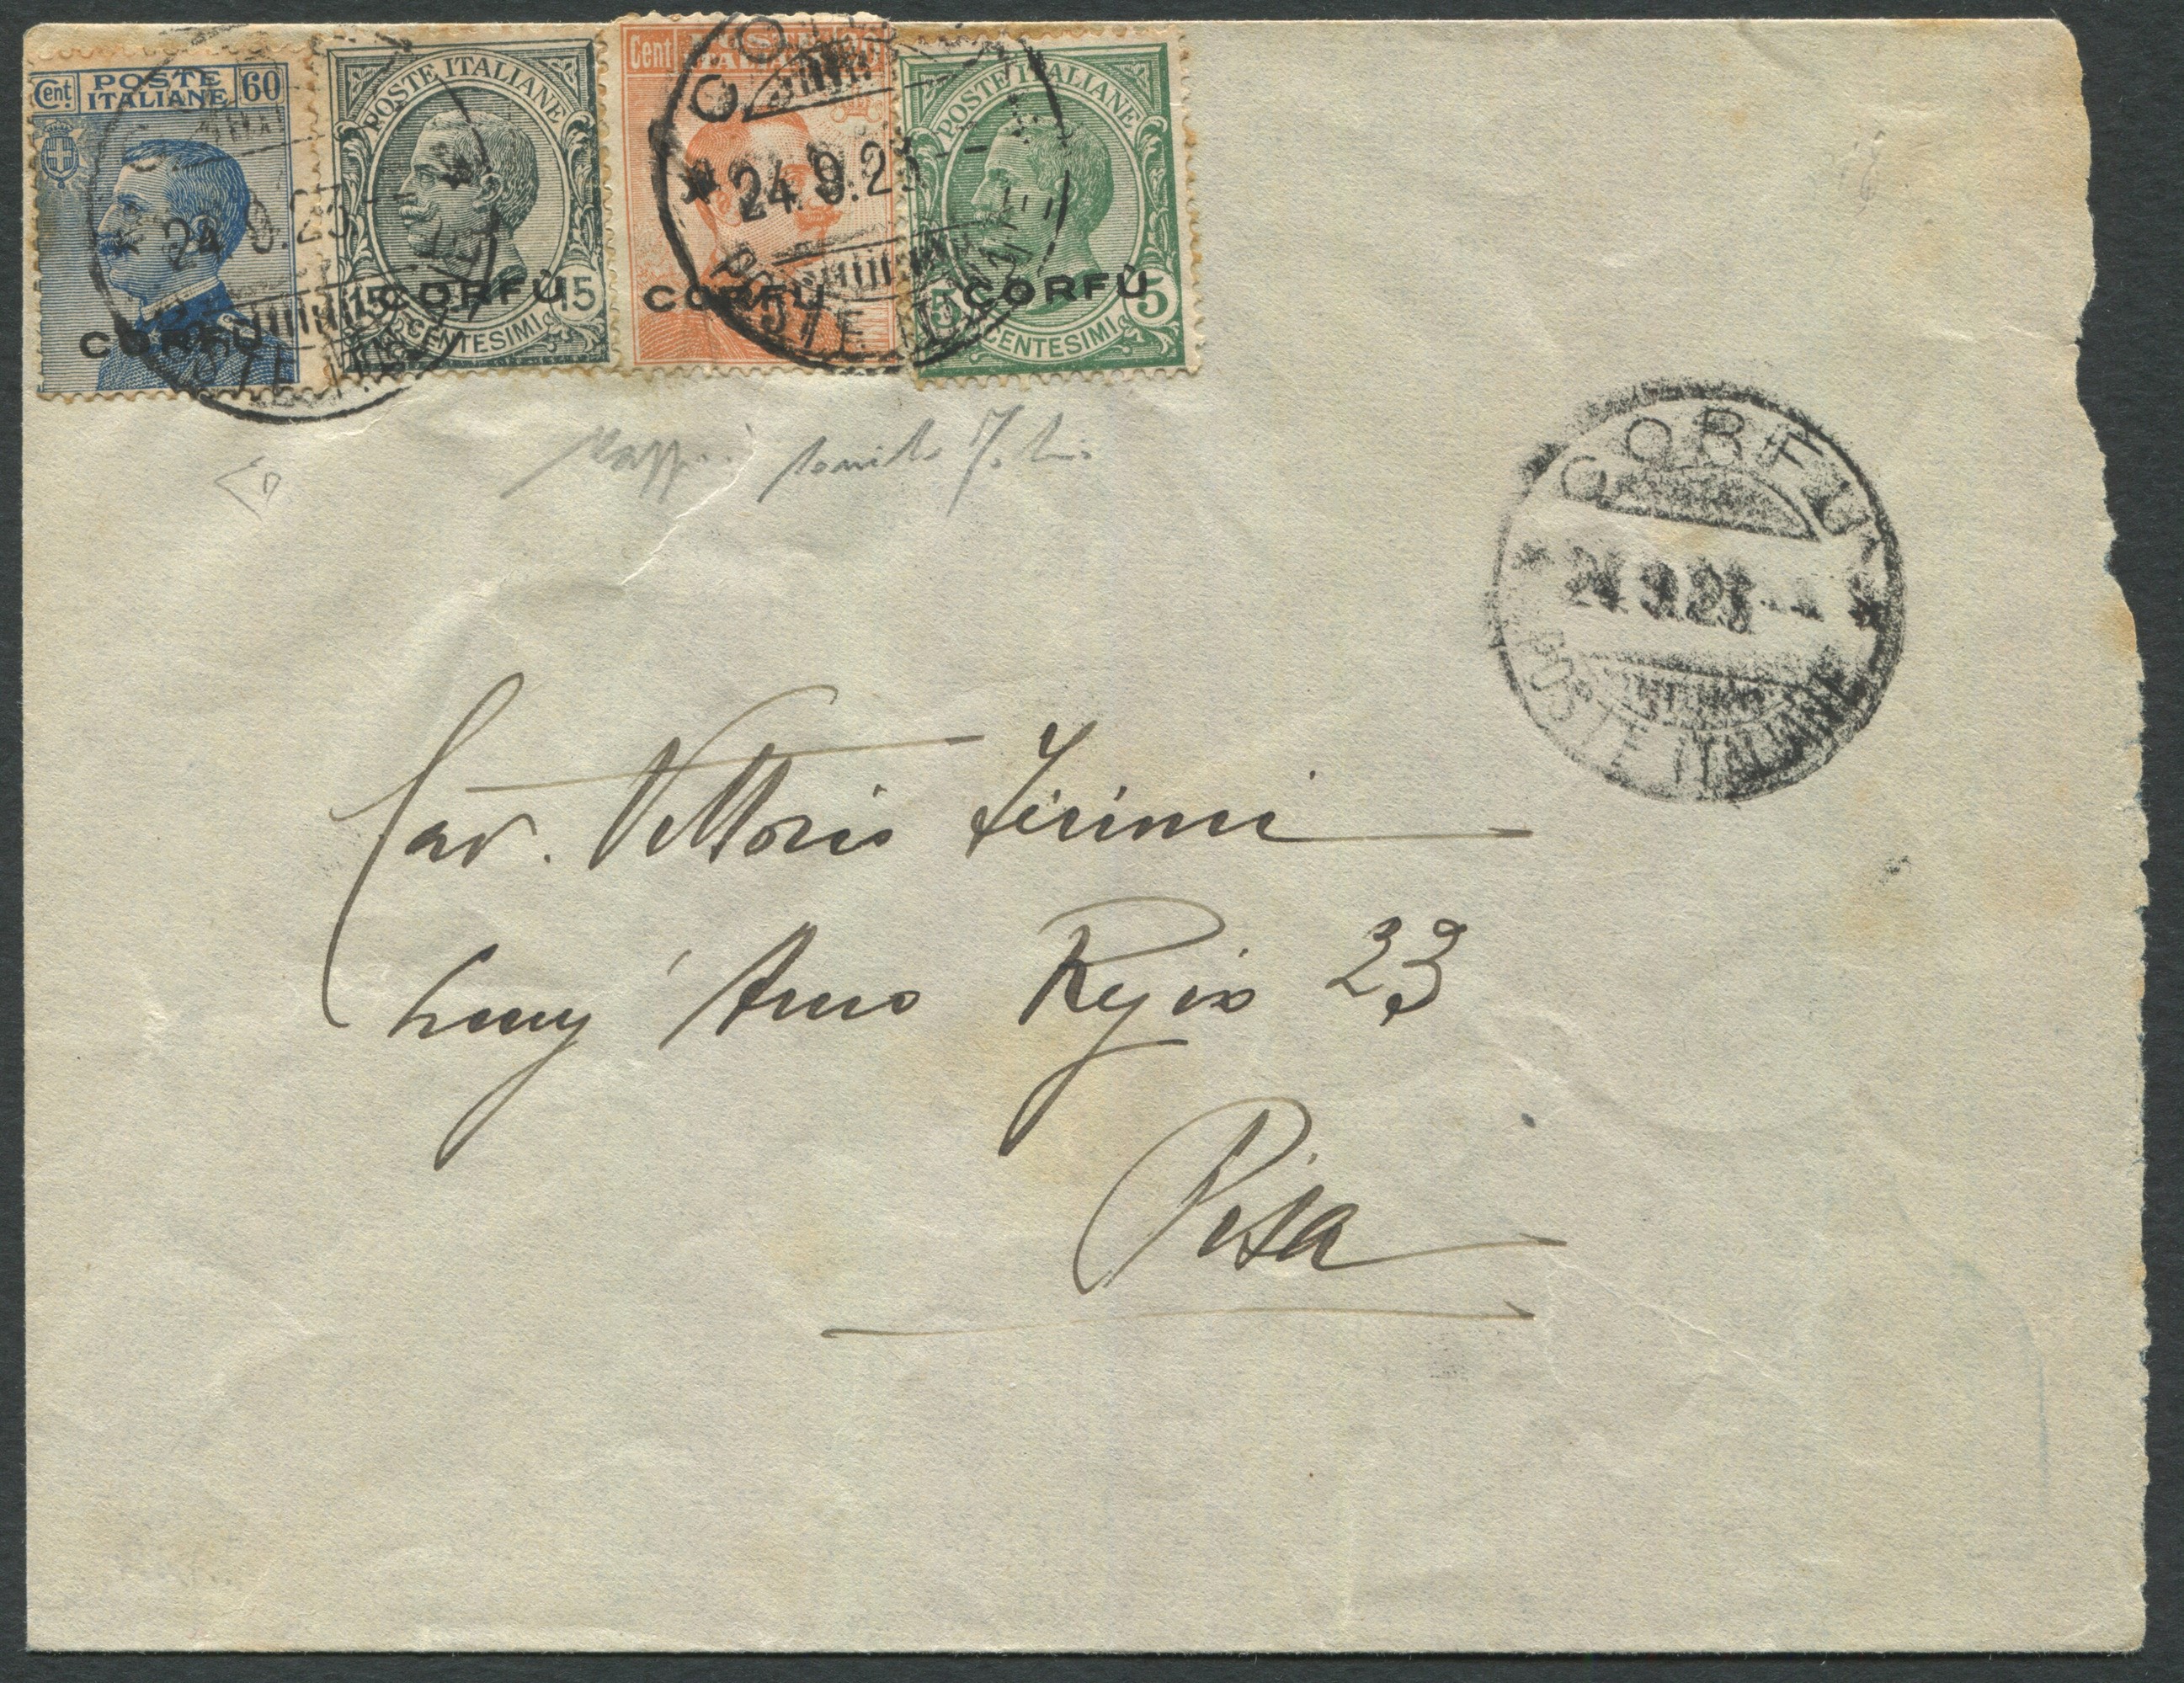 Cent. POSTE ITALIANE 60
CORFÙ
POSTE ITALIANE
15 CORFÙ 15
CENTESIMI
Cent POSTE ITALIANE 20
CORFÙ
POSTE ITALIANE
5 CORFÙ 5
CENTESIMI
* 24.9.23
POSTE ITALIANE
* 24.9.23
POSTE ITALIANE
CORFU
* 24.9.23 *
POSTE ITALIANE
Cav. Vittorio
Lung'Arno Regio 23
Pisa